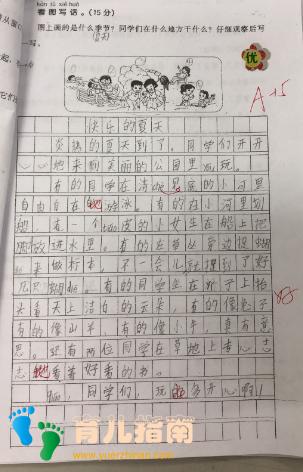 看图写话。(15分)
图上画的是什么季节?同学们在什么地方干什么?仔细观察后写
优
A+ 15
快乐的夏天
炎热的夏天到了,同学们开开
心心地来到美丽的公园里玩。
有的同学在清 见底的小河里
自由自在地游泳,有的在小河里划
船,有一个 皮的小女生在船上把
脚放进水里。有的在草丛旁边捉蝴
来做标本,不一会儿就捉到了好
几只蝴蝶。有的同学坐在 子上抬
头看天上洁白的云朵,有的像兔子
有的像山羊,有的像小牛,真有意
思。还有两位同学在草地上专心
志地看着好看的书。
同学们,玩 多开心啊!
育儿指南
www.yuerzhinan.com